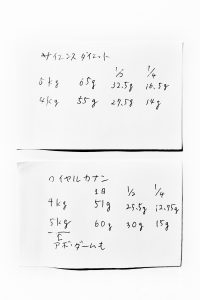 サイエンスダイエット
1/2 1/4
5kg 65g 32.5g 16.5g
4kg 55g 27.5g 14g
ロイヤルカナン
1日 1/2 1/4
4kg 51g 25.5g 12.75g
5kg 60g 30g 15g
アボ・ダームも